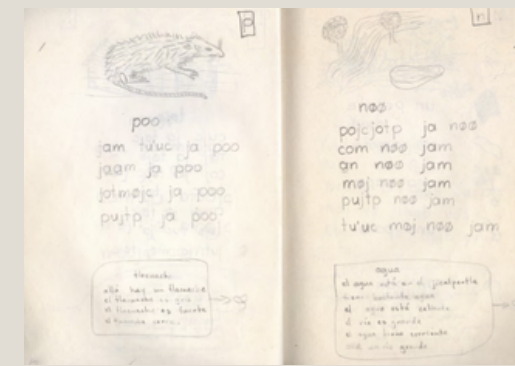 p
poo
jam tu'uc ja poo
jaam ja poo
jotmøjc ja poo
pujtp ja poo
tlacuache
allá hay un tlacuache
el tlacuache es gris
el tlacuache es
el
n
nøø
pojcjotp ja nøø
com nøø jam
an nøø jam
møj nøø jam
pujtp nøø jam
tu'uc møj nøø jam
agua
el agua está en el
bastante agua
el agua está caliente
el río es grande
el agua tiene corriente
un río grande